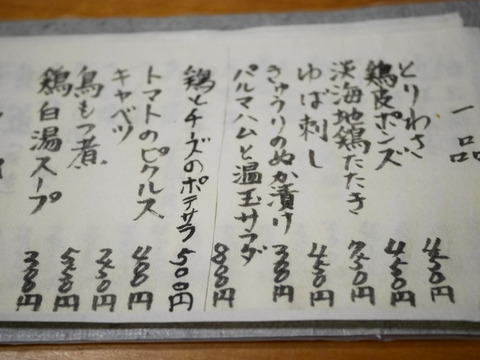 一品
とりわさ 400円
鶏皮ポンズ 450円
淡海地鶏たたき 750円
ゆば刺し 450円
きゅうりのぬか漬け 300円
パルマハムと温玉サラダ 800円
鶏とチーズのポテサラ 500円
トマトのピクルス 400円
キャベツ 250円
鳥もつ煮 500円
鶏白湯スープ 300円